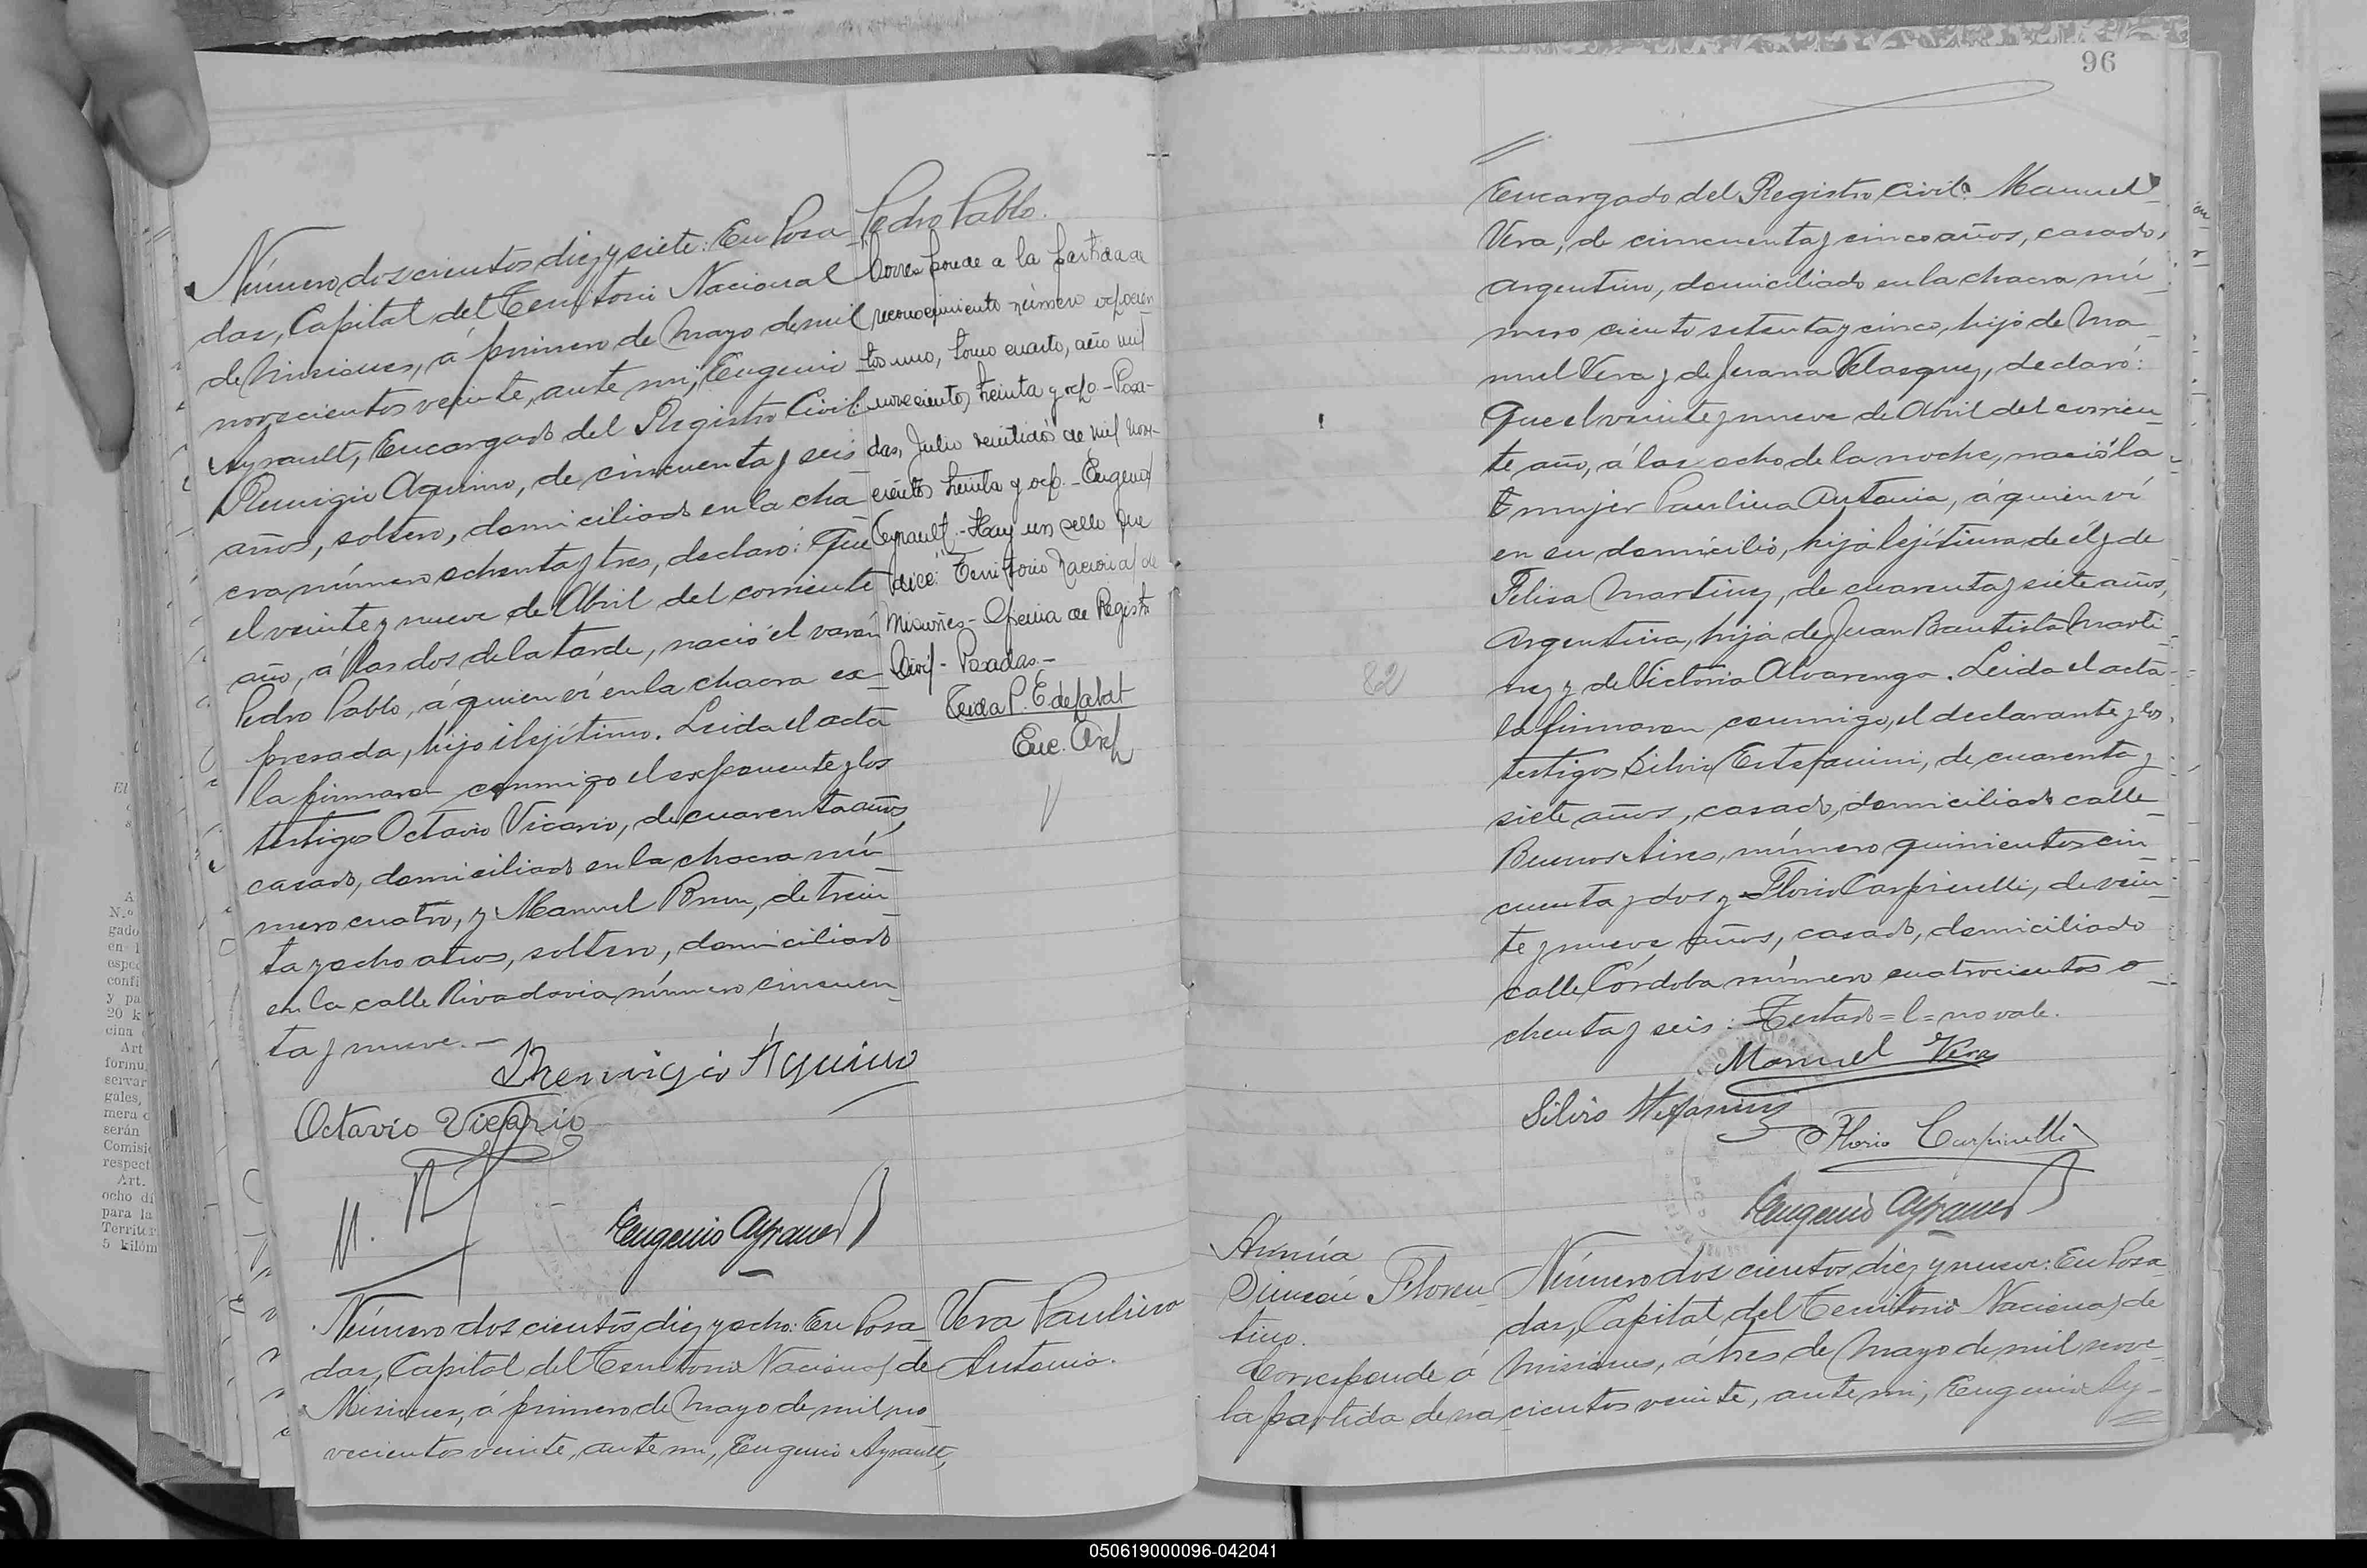 Número doscientos diez y siete: En Posa
das, Capital del Territorio Nacional
de Misiones, á primero de Mayo de mil
novecientos veinte, ante mi, Eugenio
Ayrault, Encargado del Registro Civil:
Remigio Aquino, de cincuenta y seis
años, soltero, domiciliado en la cha
cra número ochenta y tres, declaró: Que
el veinte y nueve de Abril del corriente
año, á las dos de la tarde, nació el varón
Pedro Pablo, á quien ví en la chacra ex-
presada, hijo ilejítimo. Leida el acta
la firmaron conmigo el exponente y los
testigos Octavio Vicario, de cuarenta años,
casado, domiciliado en la chacra nú
mero cuatro, y Manuel Brun, de trein
ta y ocho años, soltero, domiciliado
en la calle Rivadavia número cincuen
ta y nueve.—
Remigio Aquino
Octavio Vicario
Eugenio Ayrault
Pedro Pablo.
Corresponde a la partida de
reconocimiento número ochocien-
tos uno, tomo cuarto, año mil
novecientos treinta y ocho - Posa-
das, Julio veintidós de mil nove-
cientos treinta y ocho. - Eugenio
Ayrault. - Hay un sello que
dice: "Territorio Nacional de
Misiones - Oficina de Registro
Civil - Posadas. -
Enc. Arch
Número doscientos diez y ocho: En Posa
das, Capital del Territorio Nacional de
Misiones, á primero de Mayo de mil no
vecientos veinte, ante mi, Eugenio Ayrault,
Vera Paulina
Antonia.
96
Encargado del Registro Civil: Manuel
Vera, de cincuenta y cinco años, casado,
argentino, domiciliado en la chacra nú
mero ciento setenta y cinco, hijo de Ma
nuel Vera y de Juana Velasquez, declaró:
Que el veinte y nueve de Abril del corrien
te año, á las ocho de la noche, nació la
mujer Paulina Antonia, á quien ví
en su domicilio, hija lejítima de él y de
Felisa Martinez, de cuarenta y siete años,
argentina, hija de Juan Bautista Marti
nez y de Victoria Alvarenga. Leida el acta
la firmaron conmigo, el declarante y los
testigos Silvio Estefanini, de cuarenta y
siete años, casado, domiciliado calle
Buenos Aires, número quinientos cin
cuenta y dos y Florio Carpinelli, de vein
te y nueve años, casado, domiciliado
calle Córdoba número cuatrocientos o
chenta y seis: Testado = l = no vale.
82
Manuel Vera
Silvio Stefanini
Florio Carpinelli
Eugenio Ayrault
Simeón Floren
tino.
Corresponde á
la partida de na
Número doscientos diez y nueve: En Posa
das, Capital del Territorio Nacional de
Misiones, á tres de Mayo de mil nove
cientos veinte, ante mi, Eugenio Ay-
050619000096-042041